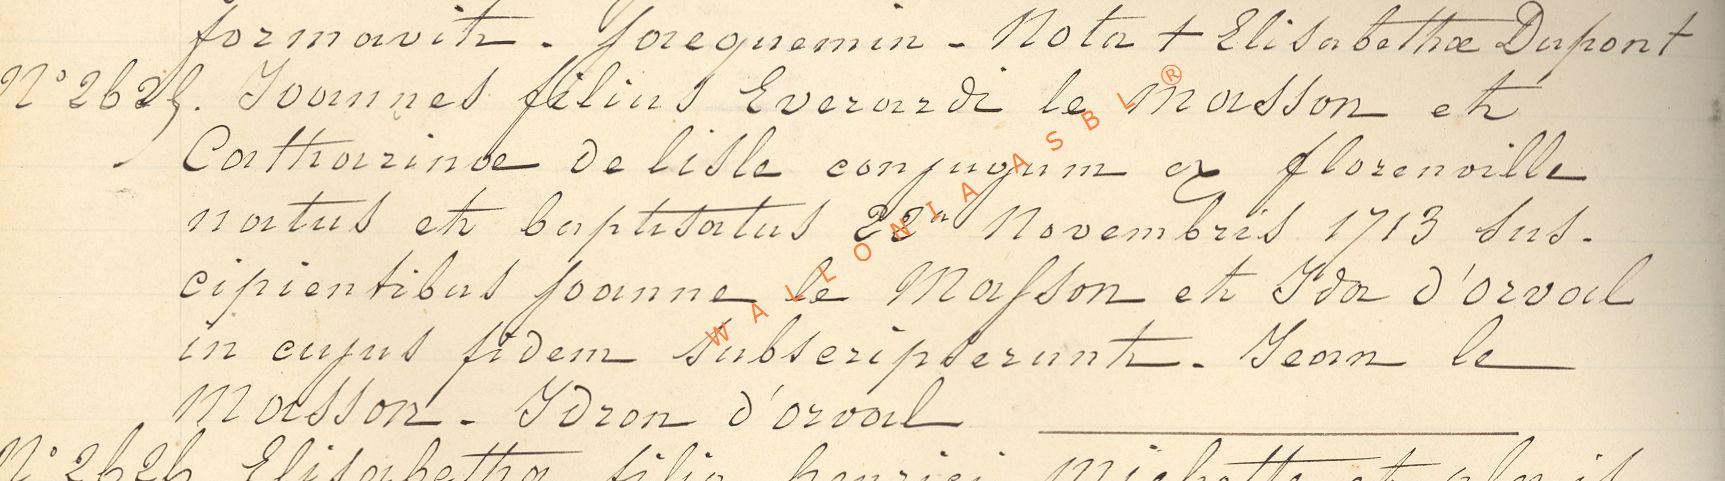 formavit. Jacquemin - Nota + Elisabethæ Dupont +
N° 2625. Joannes filius Everardi le Masson et
Catharinæ de lisle conjugum ex florenville
natus et baptisatus 22a Novembris 1713 sus-
cipientibus Joanne le Masson et Ida d'orval
in cujus fidem subscripserunt. Jean le
Masson. Idron d'orval
N° 2626 Elisabetha filia henrici Michotte et
WALLONIA ASBL ®